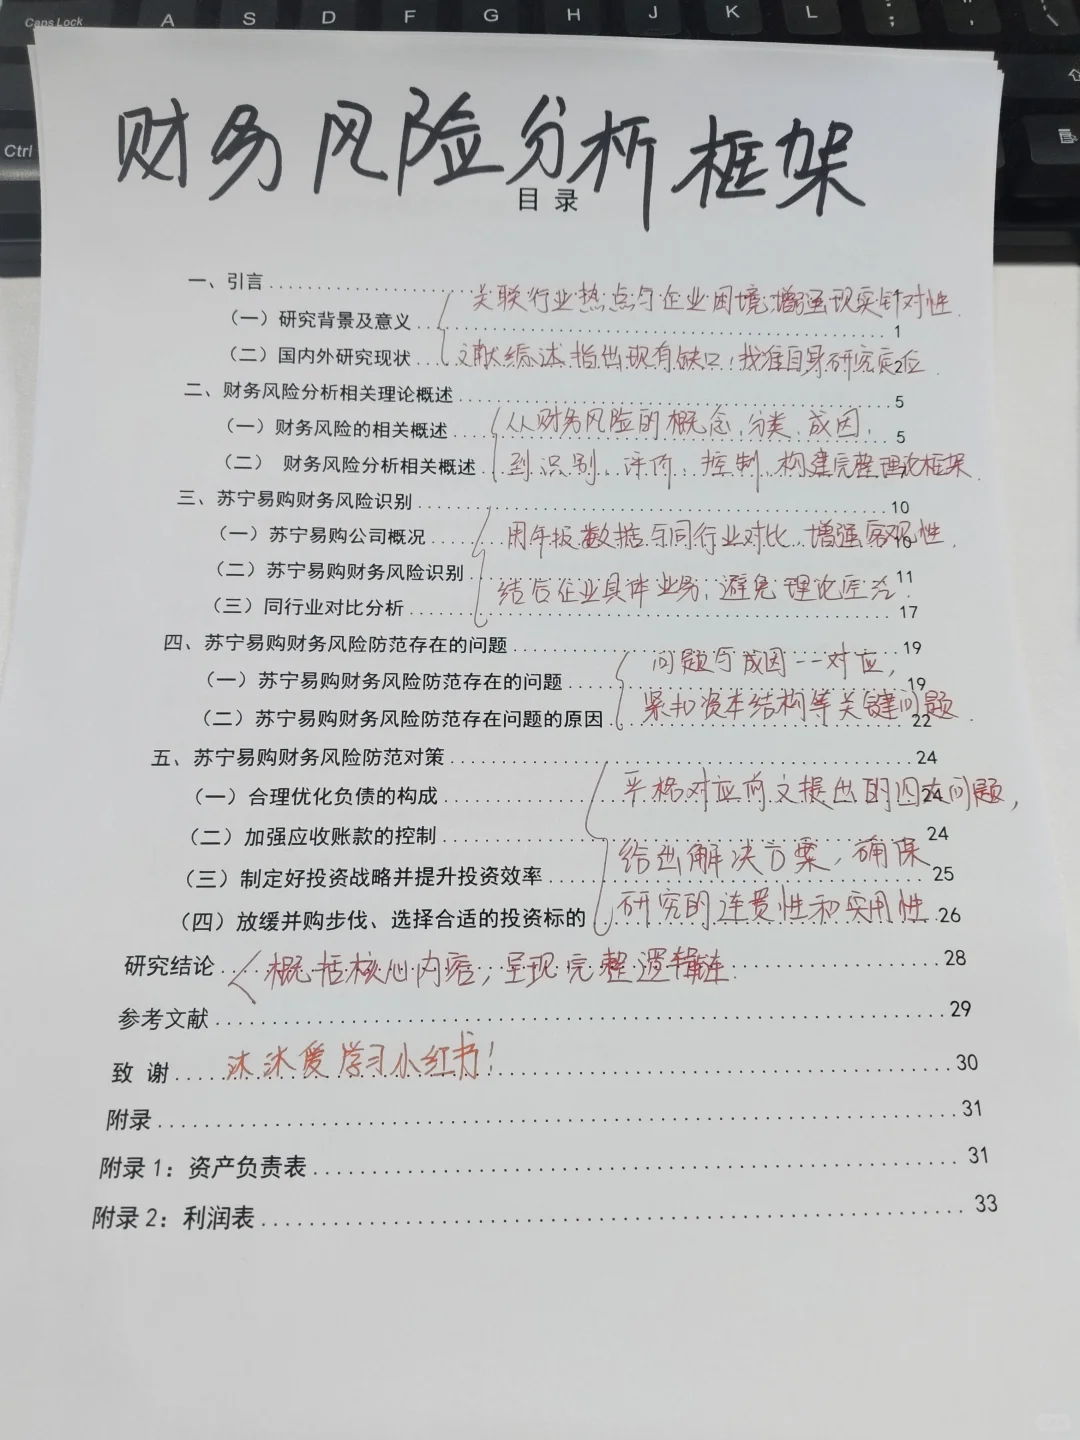 Caps Lock A S D F G H J K L ; ' \
Ctrl
财务风险分析框架
目 录
一、引言
关联行业热点与企业困境,增强现实针对性.
（一）研究背景及意义 1
（二）国内外研究现状 2
文献综述指出现有缺口,找准自身研究定位.
二、财务风险分析相关理论概述 5
（一）财务风险的相关概述 5
从财务风险的概念、分类、成因,
（二） 财务风险分析相关概述
到识别、评价、控制,构建完整理论框架.
三、苏宁易购财务风险识别 10
（一）苏宁易购公司概况 10
用年报数据与同行业对比,增强客观性.
（二）苏宁易购财务风险识别 11
结合企业具体业务,避免理论匠气.
（三）同行业对比分析 17
四、苏宁易购财务风险防范存在的问题 19
问题与成因一一对应,
（一）苏宁易购财务风险防范存在的问题 19
紧扣资本结构等关键问题.
（二）苏宁易购财务风险防范存在问题的原因 22
五、苏宁易购财务风险防范对策 24
（一）合理优化负债的构成 24
严格对应前文提出的四大问题,
（二）加强应收账款的控制 24
给出解决方案,确保
（三）制定好投资战略并提升投资效率 25
研究的连贯性和实用性
（四）放缓并购步伐、选择合适的投资标的 26
研究结论 28
概括核心内容,呈现完整逻辑链.
参考文献 29
致 谢 30
沐沐爱学习小红书!
附录 31
附录 1：资产负责表 31
附录 2：利润表 33